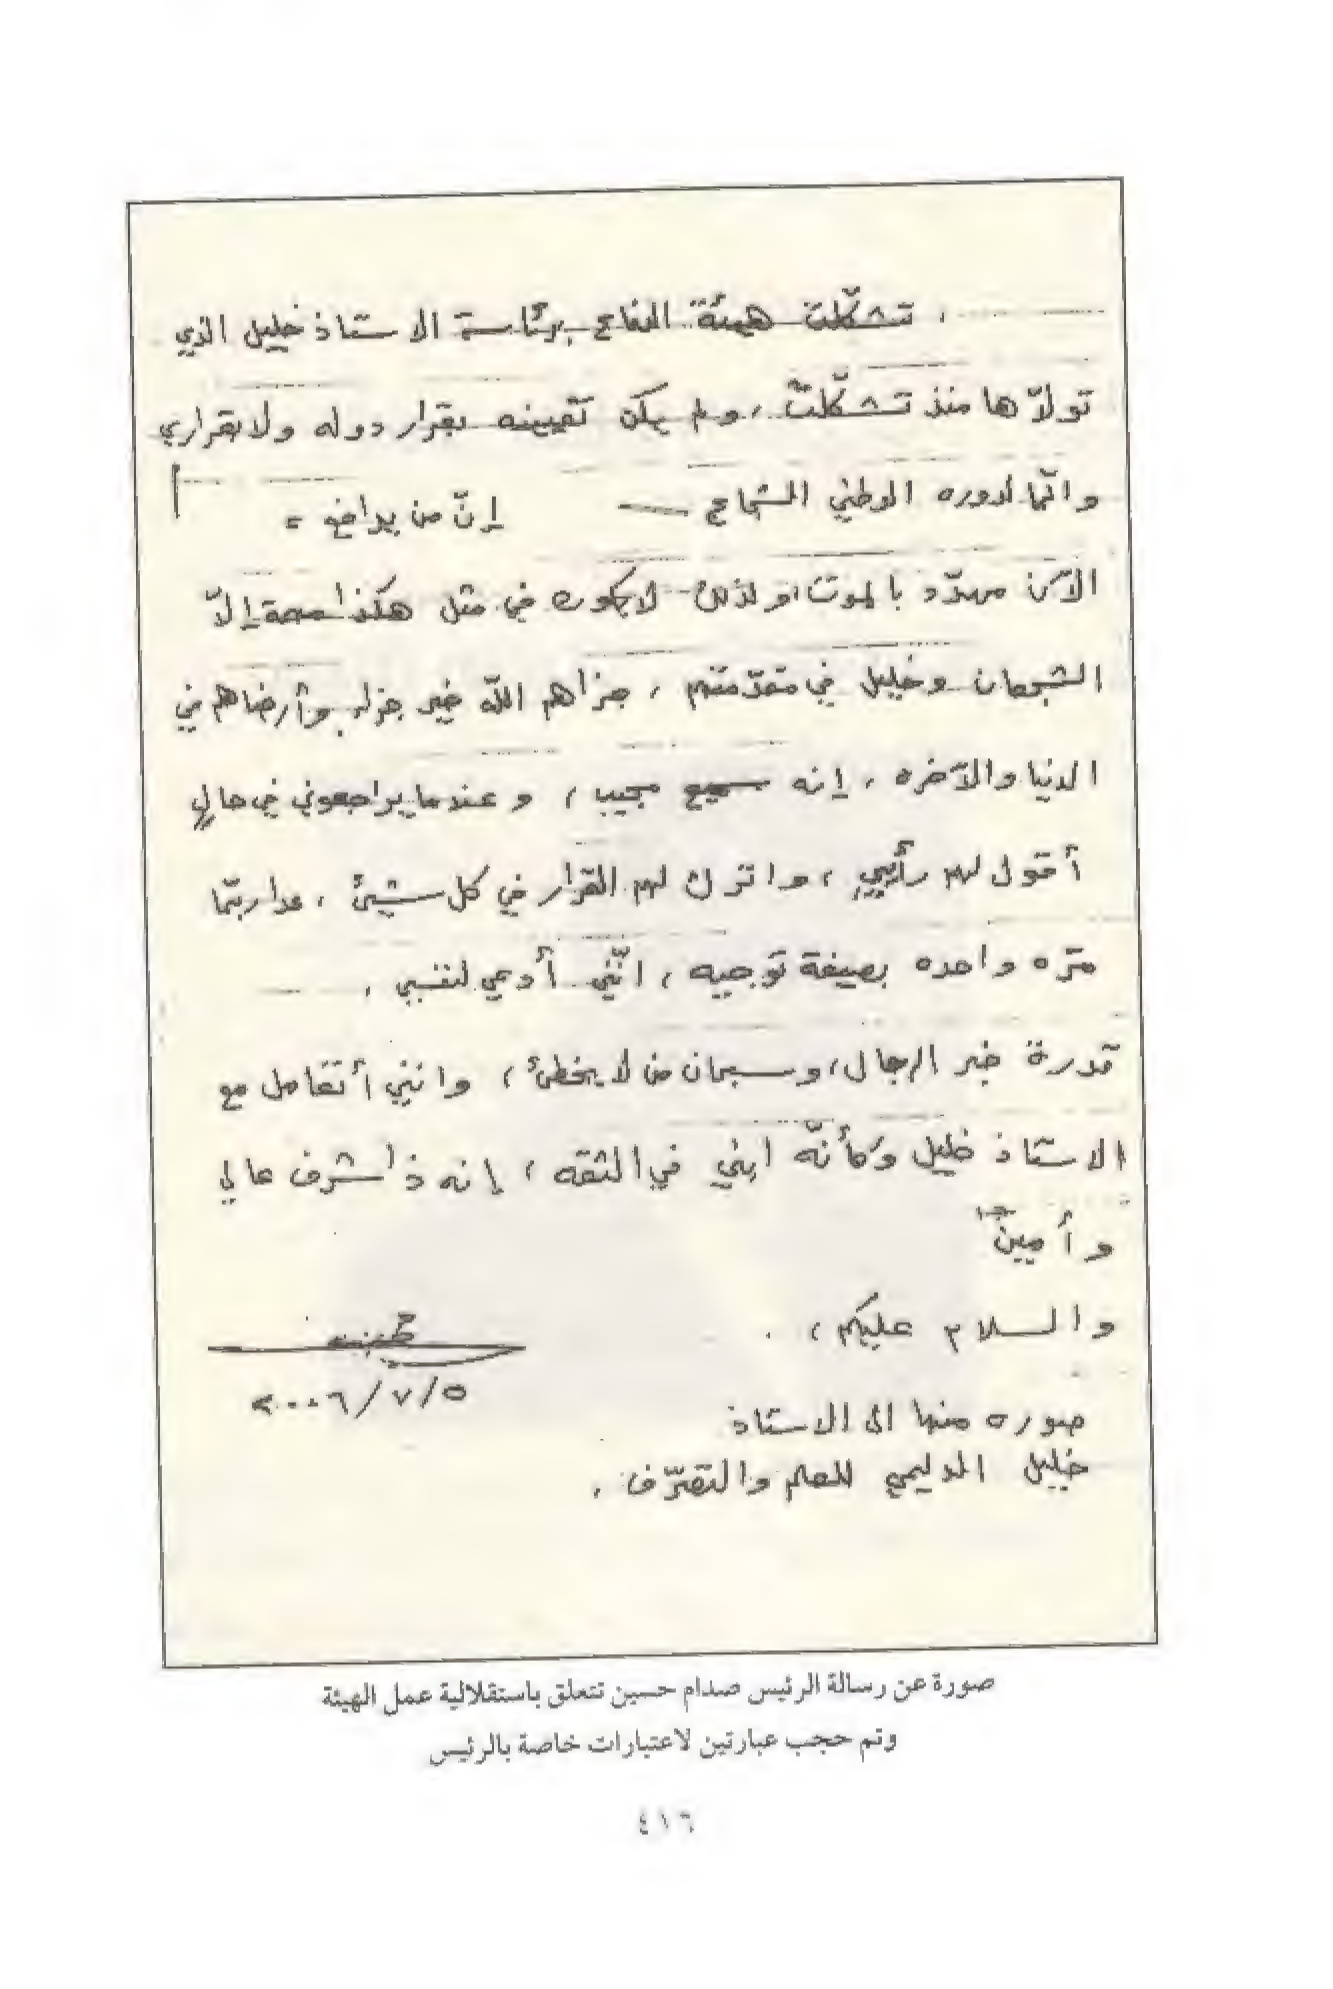 ، تشكّلت هيئة الدفاع برئاسة الاستاذ خليل الذي
تولاّها منذ تشكّلت، ولم يكن تعيينه بقرار دوله ولا بقراري
وانّما لدوره الوطني الشجاع — إنّ من يدافع =
الآن مهدّد بالموت، ولذلك لا يكون في مثل هكذا مهمة إلاّ
الشجعان وخليل في مقدّمتهم، جزاهم الله خير جزاء وأرضاهم في
الدنيا والآخره، إنه سميع مجيب، وعندما يراجعوني في حالٍ
أقول لهم رأيي، واترك لهم القرار في كل شيئ، عدا ربّما
مرّه واحده بصيغة توجيه، انّني أدعي لنفسي،
قدرة خبر الرجال، وسبحان من لا يخطئ، وانني أتعامل مع
الاستاذ خليل وكأنّه ابني في الثقه، إنه ذا شرف عالي
وأمين
والسلام عليكم،
٢٠٠٦/٧/٥
صوره منها الى الاستاذ
خليل الدليمي للعلم والتصرّف.
صورة عن رسالة الرئيس صدام حسين تتعلق باستقلالية عمل الهيئة
وتم حجب عبارتين لاعتبارات خاصة بالرئيس
٤١٦